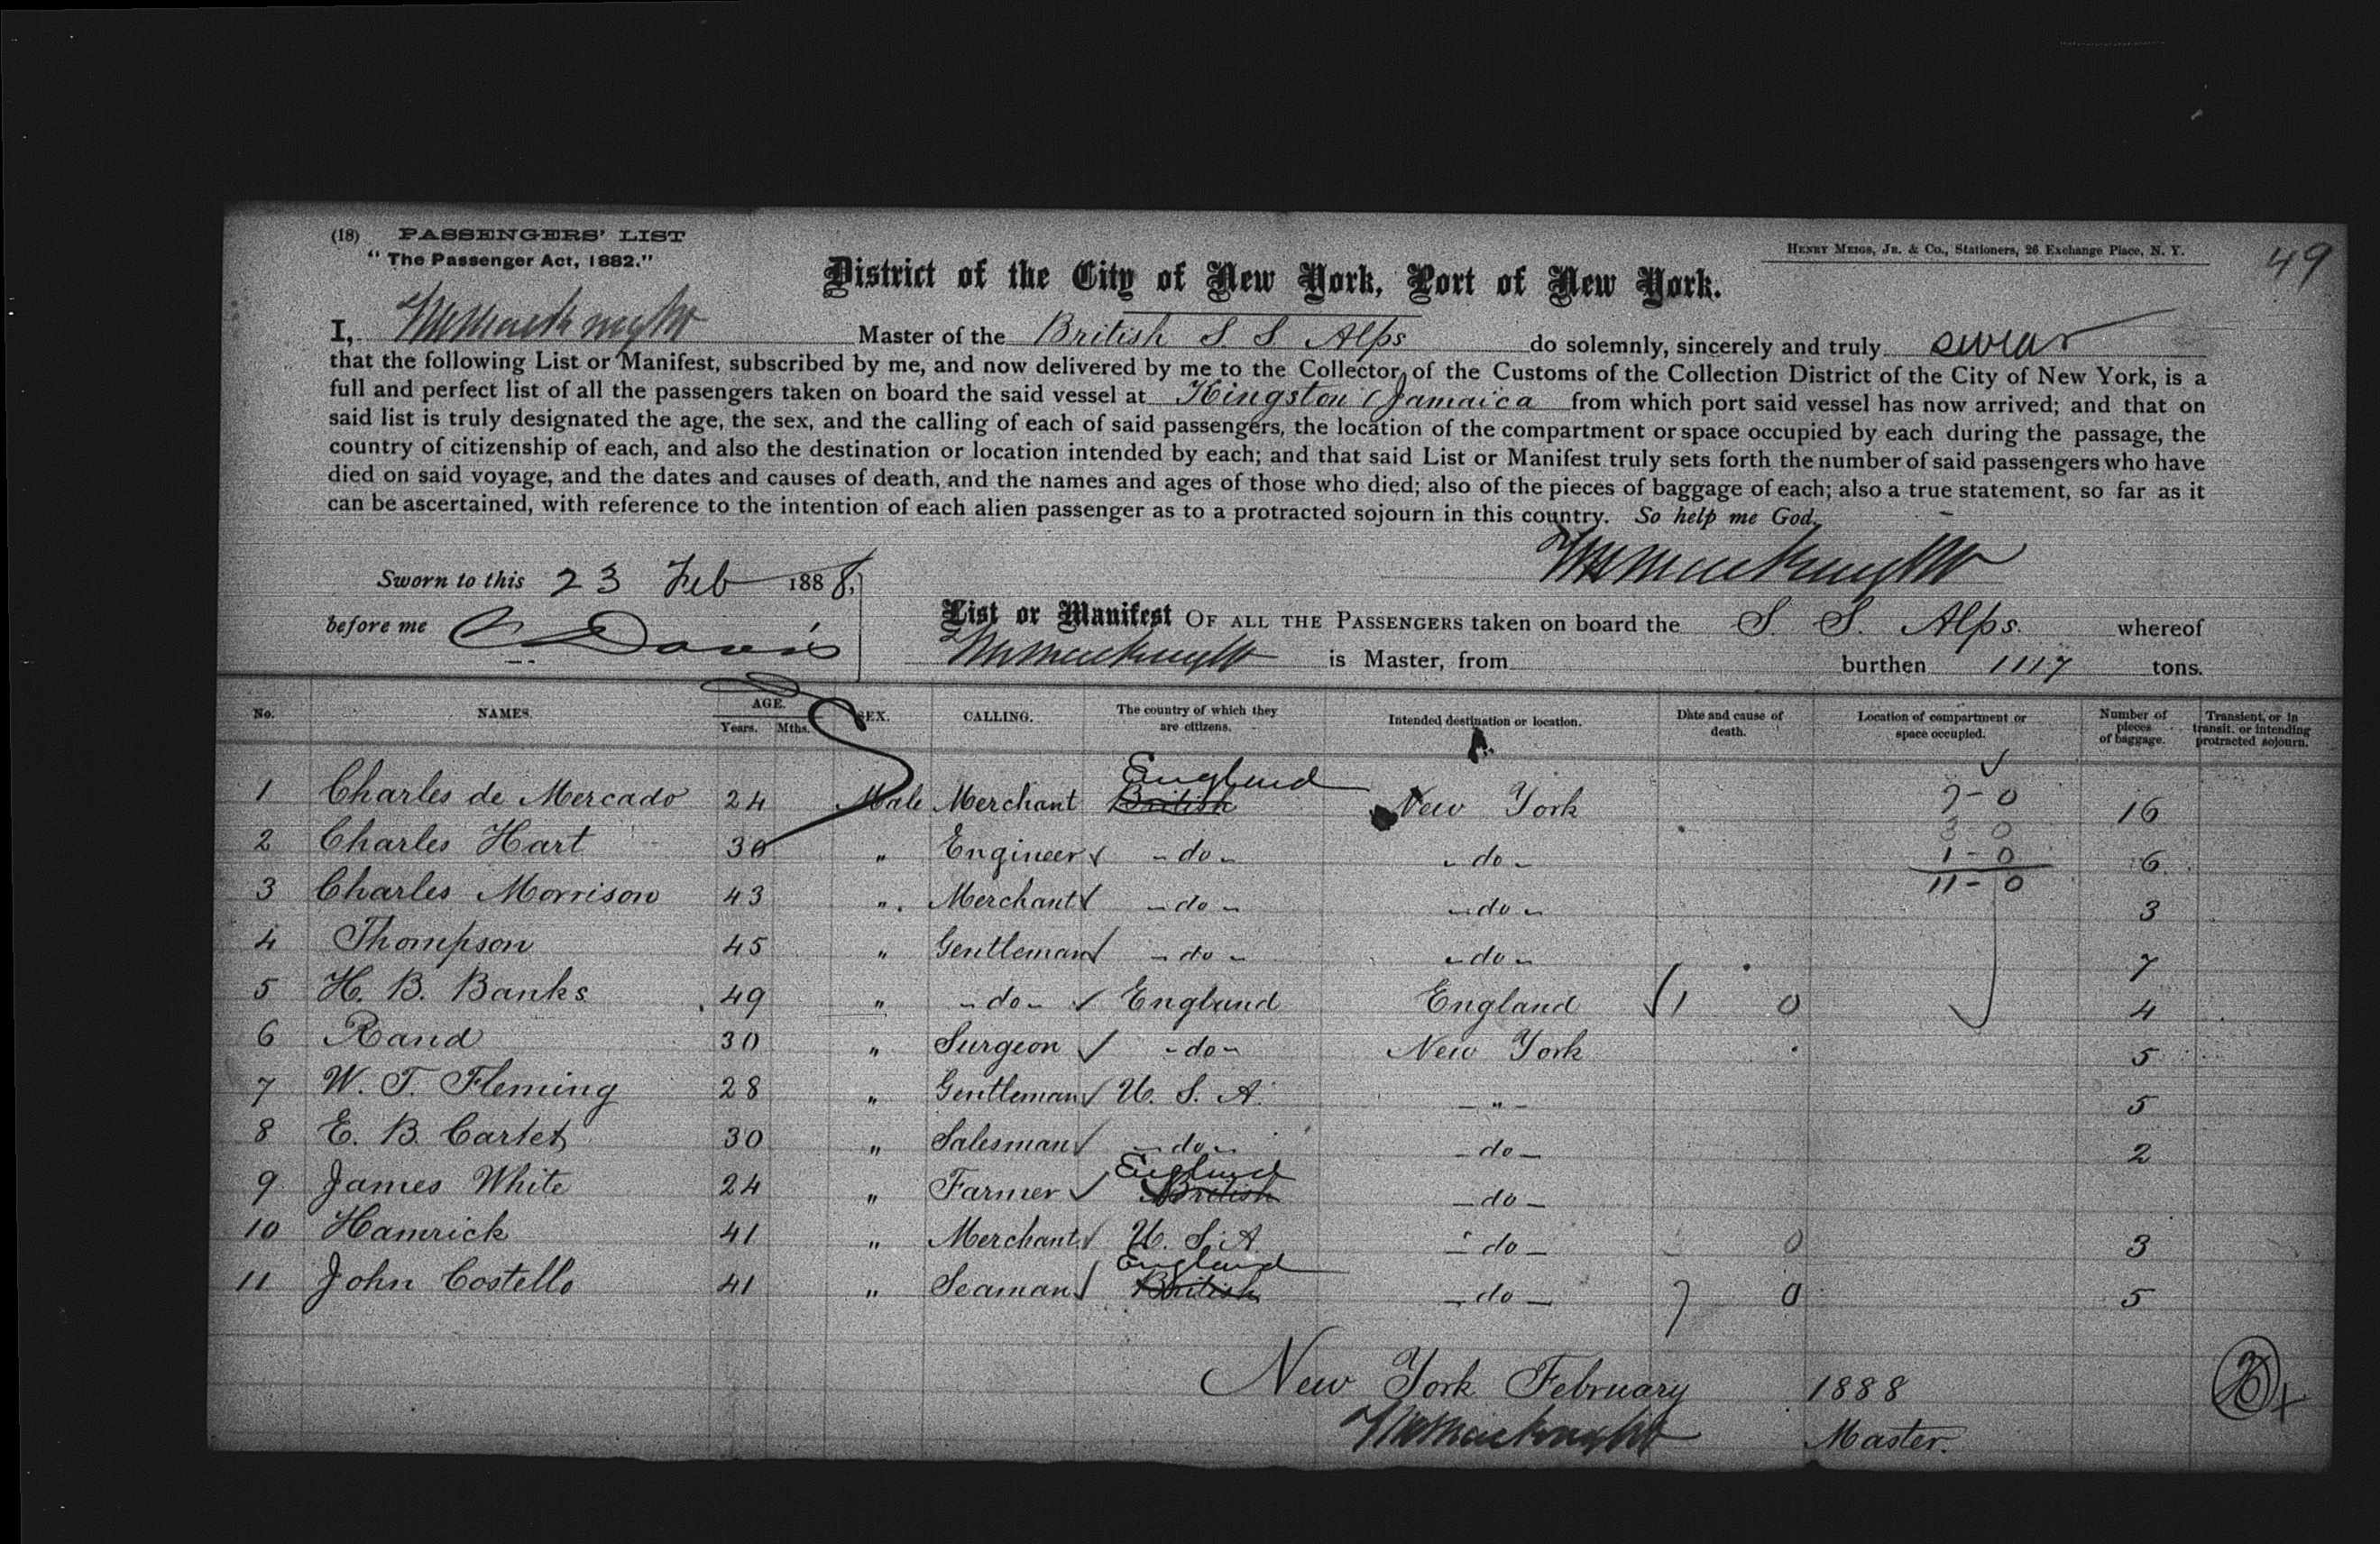 (18) PASSENGERS' LIST
"The Passenger Act, 1882."
HENRY MEIGS, JR. & CO., Stationers, 26 Exchange Place, N. Y.
49
District of the City of New York, Port of New York.
I, Master of the British S S Alps do solemnly, sincerely and truly swear
that the following List or Manifest, subscribed by me, and now delivered by me to the Collector of the Customs of the Collection District of the City of New York, is a
full and perfect list of all the passengers taken on board the said vessel at Kingston Jamaica from which port said vessel has now arrived; and that on
said list is truly designated the age, the sex, and the calling of each of said passengers, the location of the compartment or space occupied by each during the passage, the
country of citizenship of each, and also the destination or location intended by each; and that said List or Manifest truly sets forth the number of said passengers who have
died on said voyage, and the dates and causes of death, and the names and ages of those who died; also of the pieces of baggage of each; also a true statement, so far as it
can be ascertained, with reference to the intention of each alien passenger as to a protracted sojourn in this country. So help me God.
Sworn to this 23 Feb 1888,
before me Davis
List or Manifest OF ALL THE PASSENGERS taken on board the S. S. Alps. whereof
is Master, from burthen 1117 tons.
No. NAMES. AGE. Years. Mths. SEX. CALLING. The country of which they are citizens. Intended destination or location. Date and cause of death. Location of compartment or space occupied. Number of pieces of baggage. Transient, or in transit, or intending protracted sojourn.
1 Charles de Mercado 24 Male Merchant British England New York 7-0 16
2 Charles Hart 30 " Engineer - do - - do - 3-0 1-0 6
3 Charles Morrison 43 " Merchant - do - - do - 11-0 3
4 Thompson 45 " Gentleman - do - - do - 7
5 H. B. Banks 49 " - do - England England 1 0 4
6 Rand 30 " Surgeon - do - New York 5
7 W. T. Fleming 28 " Gentleman U. S. A. - " - 5
8 E. B. Carter 30 " Salesman - do - - do - 2
9 James White 24 " Farmer British England - do -
10 Hamrick 41 " Merchant U. S. A. - do - 0 3
11 John Costello 41 " Seaman British England - do - 7 0 5
New York February 1888
Master.